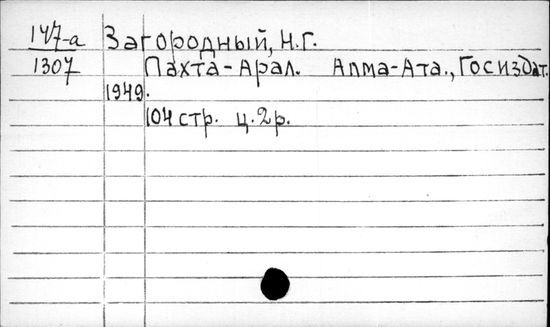 147-а Загородный, Н.Г.
1307 Пахта-Арал. Алма-Ата., Госиздат.
1949.
104 стр. ц. 2 р.